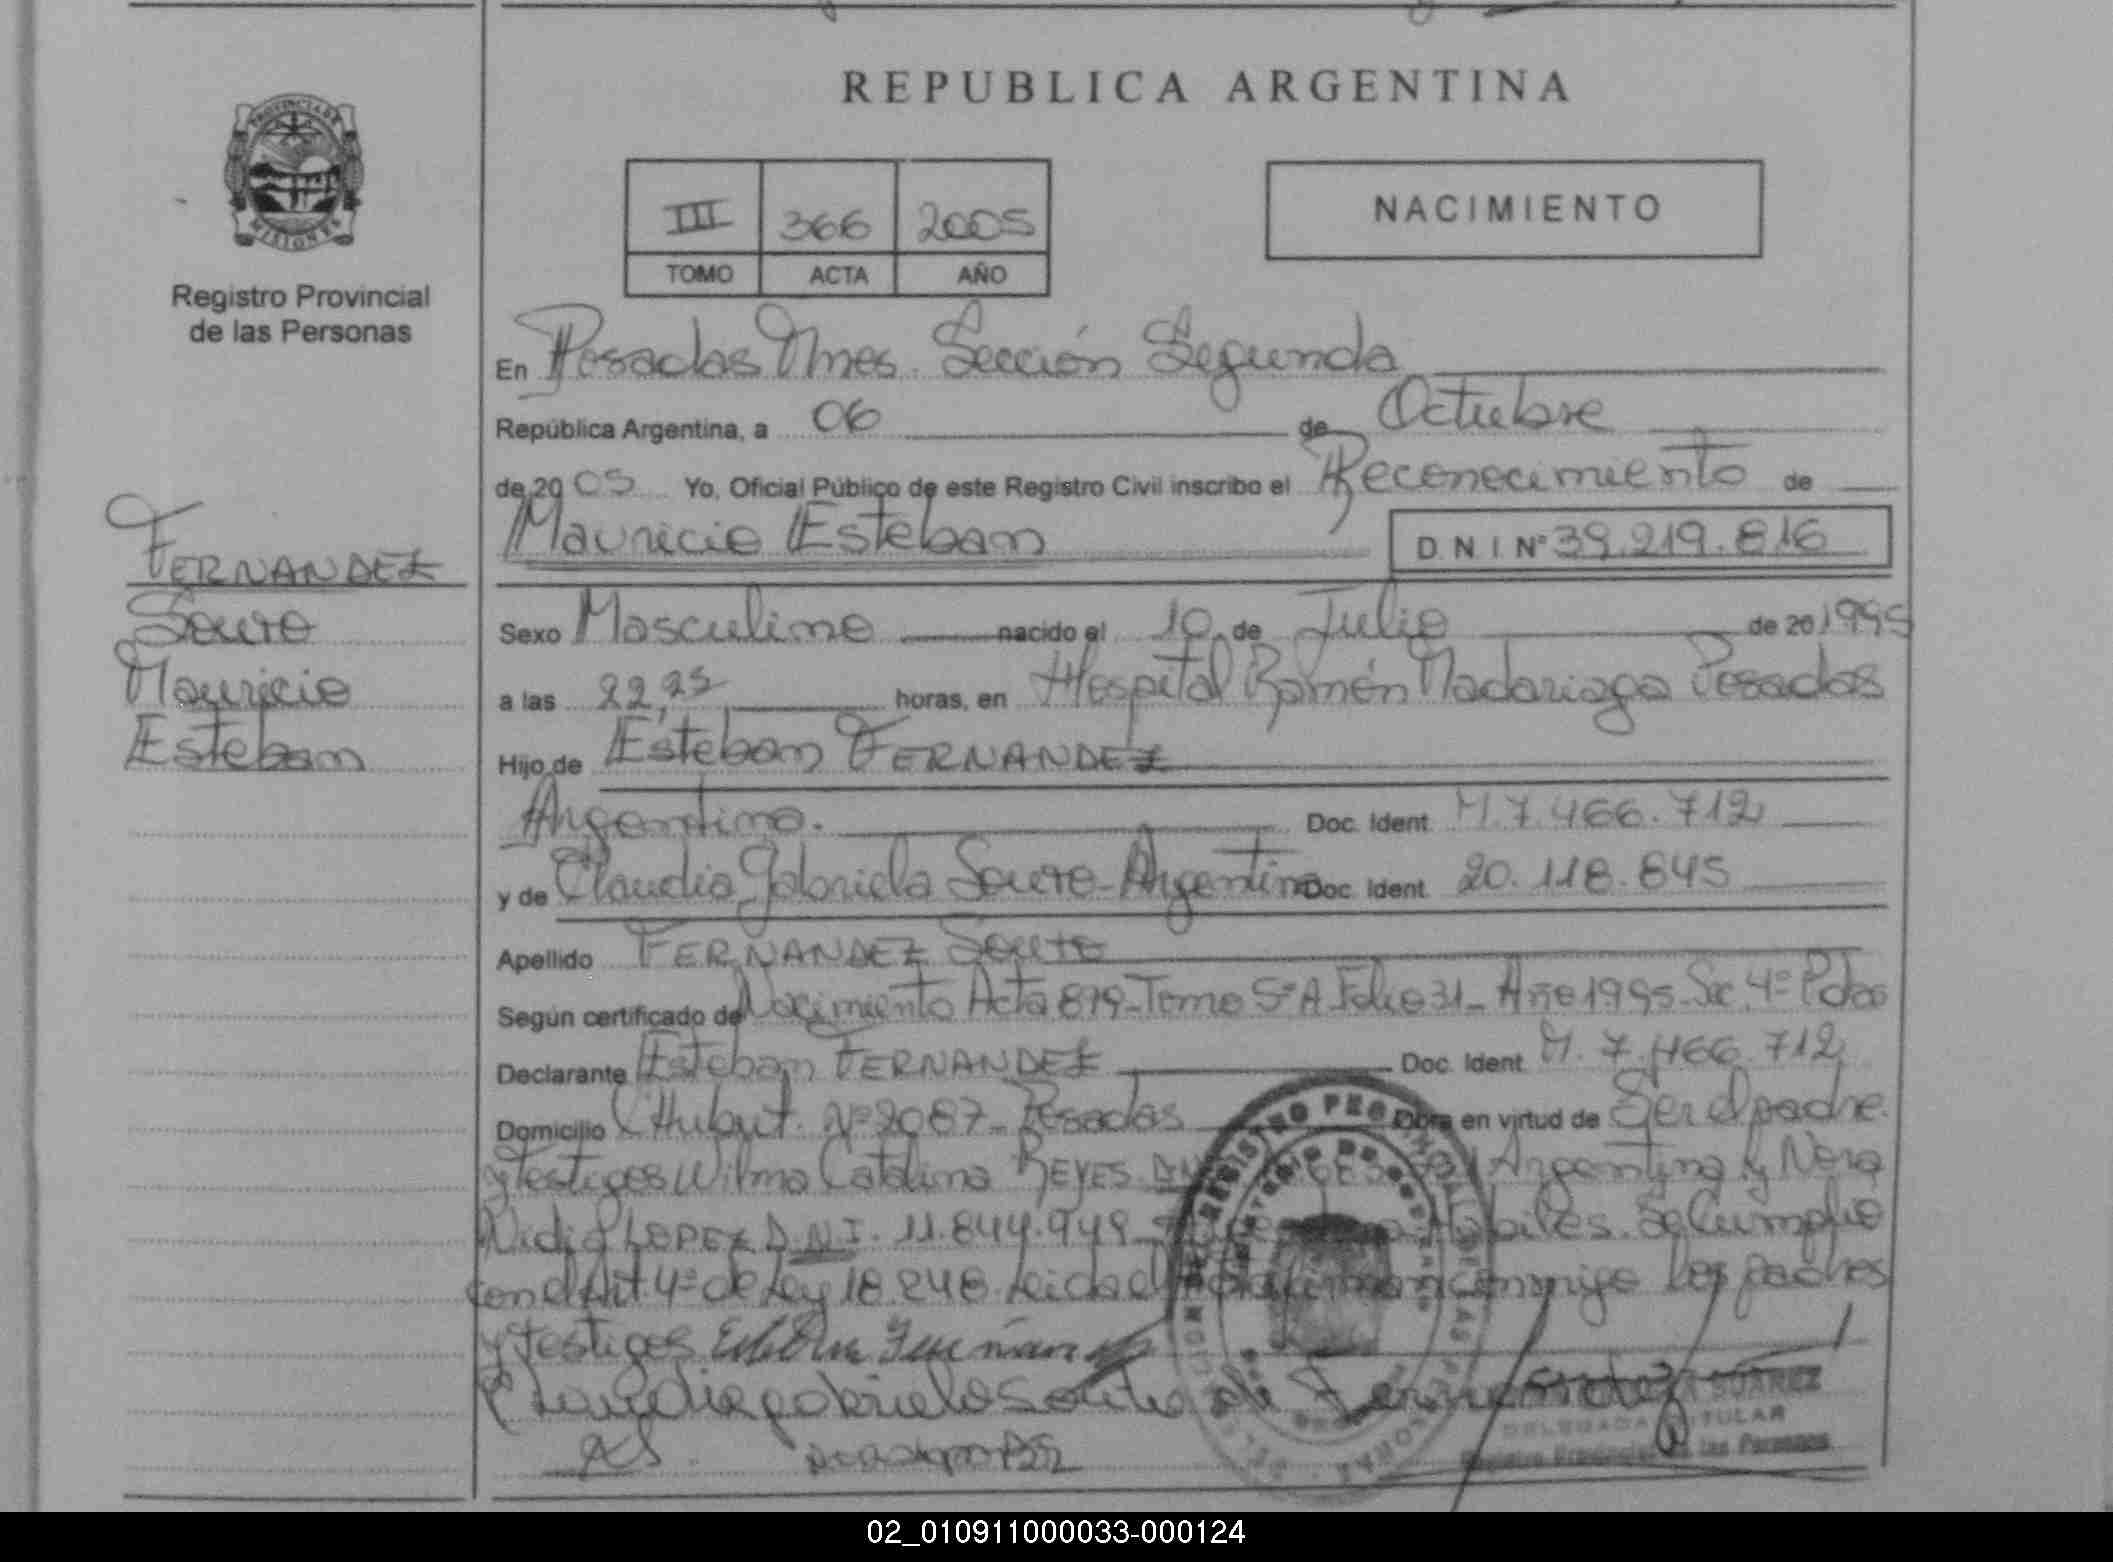 REPUBLICA ARGENTINA
PROVINCIA DE
MISIONES
Registro Provincial
de las Personas
III 366 2005
TOMO ACTA AÑO
NACIMIENTO
En Posadas Mnes. Sección Segunda
República Argentina, a 06 de Octubre
de 20 05 Yo, Oficial Público de este Registro Civil inscribo el Reconocimiento de
Mauricio Esteban D N I Nº 39.219.816
FERNANDEZ
Souto
Mauricio
Esteban
Sexo Masculino nacido el 10 de Julio de 20 1995
a las 22,25 horas, en Hospital Ramón Madariaga Posadas
Hijo de Esteban FERNANDEZ
Argentino. Doc. Ident. M.7.466.712
y de Claudia Gabriela Souto - Argentina Doc. Ident. 20.118.845
Apellido FERNANDEZ Souto
Según certificado de Nacimiento Acta 879 - Tomo 5º A Folio 31 - Año 1995 - Sec. 4º Pdas
Declarante Esteban FERNANDEZ Doc. Ident. M. 7.466.712
Domicilio Chubut Nº 2087 - Posadas Obra en virtud de Ser el padre
y testigos Wilma Catalina REYES Argentina y Nora
Nidia LOPEZ D.N.I. 11.844.949 Hábiles. Se Cumplio
con el Art. 4º de Ley 18.248. Leida el firman conmigo los padres
y testigos
Claudia gabriela Souto de Fernandez
SUAREZ
DELEGADA TITULAR
Registro Provincial de las Personas
02_010911000033-000124